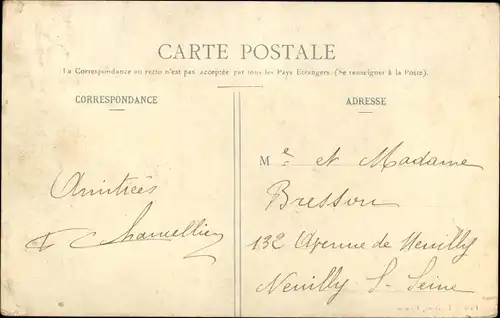 CARTE POSTALE
La Correspondance au recto n'est pas acceptée par tous les Pays Etrangers. (Se renseigner à la Poste).
CORRESPONDANCE
ADRESSE
Amitiés
Mr et Madame
Bresson
132 Avenue de Neuilly
Neuilly S- Seine